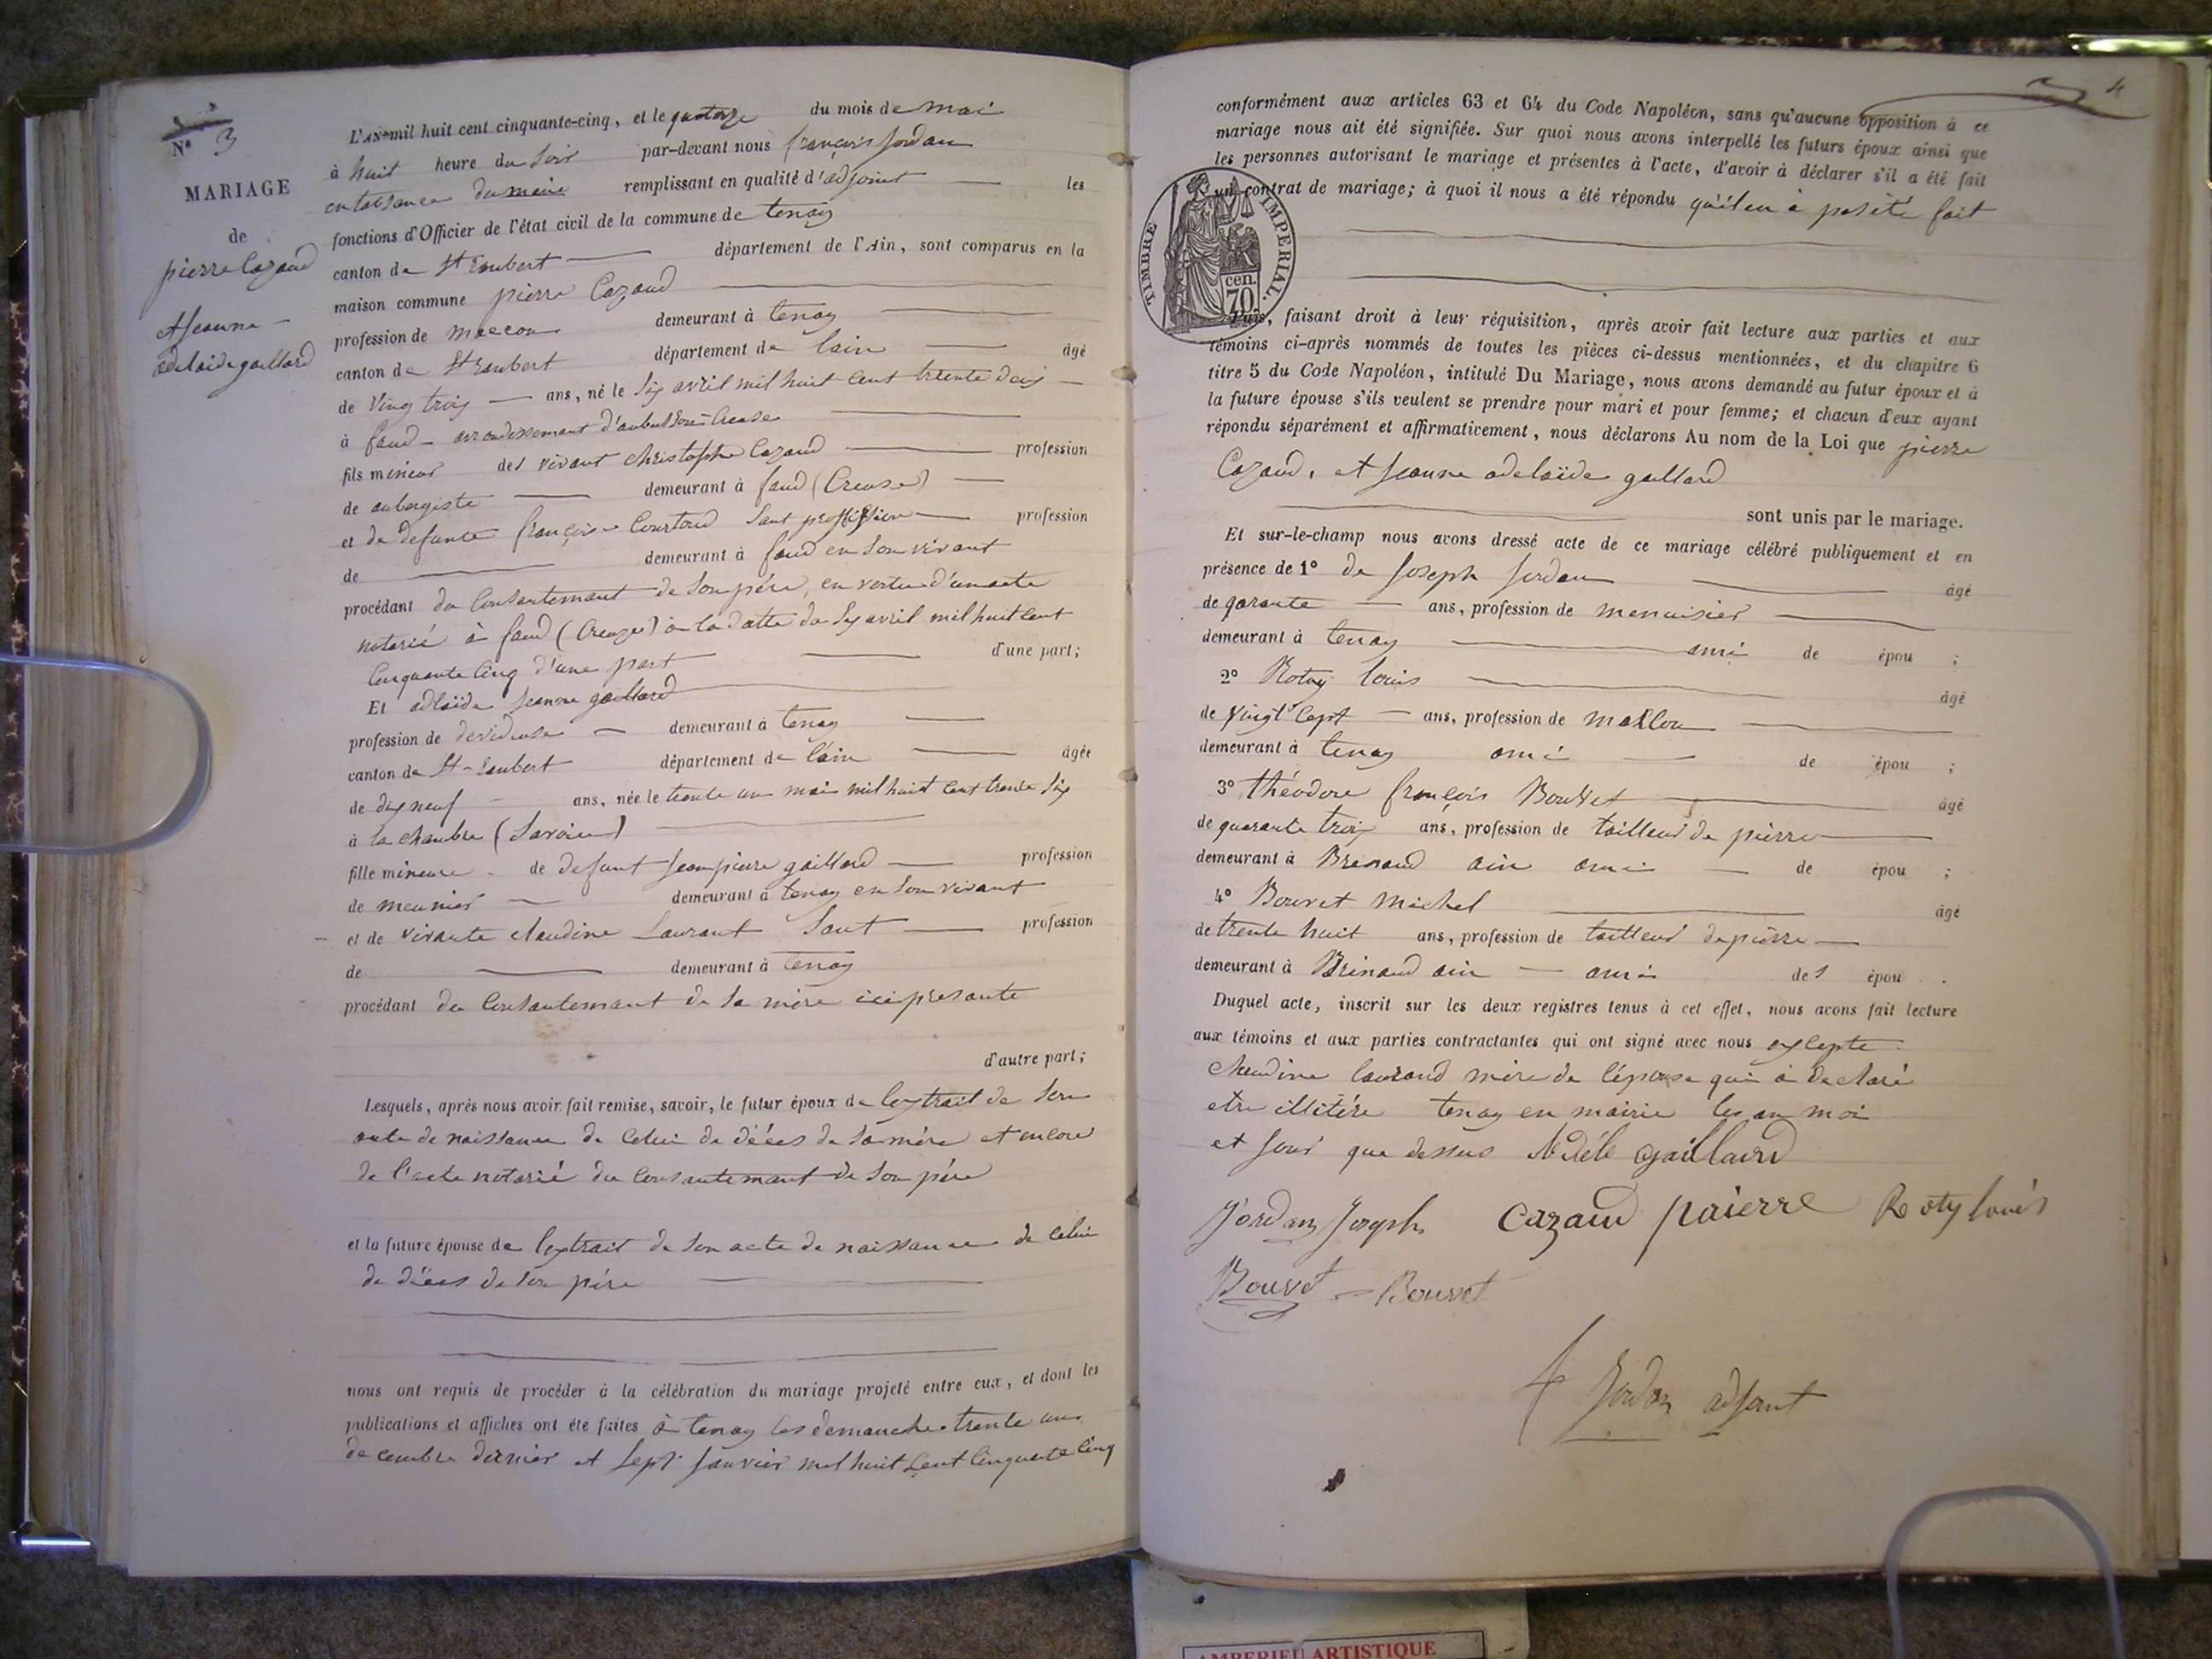 N° 3
MARIAGE
de
pierre Cazaud
et jeanne
adelaide gaillard
L'AN mil huit cent cinquante-cinq, et le quatorze du mois de mai
à huit heure du soir par-devant nous françois Jordan
en l'absence du maire remplissant en qualité d'adjoint les
fonctions d'Officier de l'état civil de la commune de tenay
canton de St Rambert département de l'Ain, sont comparus en la
maison commune pierre Cazaud
profession de maccon demeurant à tenay
canton de St Rambert département de lain âgé
de Ving trois ans, né le six avril mil huit cent trente deux
à faud arrondissement d'aubusson Creuse
fils mineur des vivant christophe Cazaud profession
de aubergiste demeurant à faud (Creuse)
et de defunte françoise Courtaud sant proffission profession
de demeurant à faud en son vivant
procédant du Consantemant de son père, en vertu d'un acte
notarié à faud (Creuze) à la datte du six avril mil huit cent
Cinquante Cinq d'une part d'une part;
Et adlaïde jeanne gaillard
profession de devideuse demeurant à tenay
canton de St-Rambert département de lain âgée
de dix neuf ans, née le trente un mai mil huit cent trente six
à la chambre (Savoie)
fille mineure de defunt jean pierre gaillard profession
de meunier demeurant à tenay en son vivant
et de vivante claudine Laurant Sant profession
de demeurant à tenay
procédant du Consantemant de sa mère ici presante
d'autre part;
Lesquels, après nous avoir fait remise, savoir, le futur époux de lextrait de son
acte de naissance de celui de décès de sa mère et encore
de l'acte notarié du consantemant de son père
et la future épouse de lextrait de son acte de naissance de celui
de décès de son père
nous ont requis de procéder à la célébration du mariage projeté entre eux, et dont les
publications et affiches ont été faites à tenay les demanche trente un
decembre dernier et sept janvier mil huit cent cinquante cinq
4
conformément aux articles 63 et 64 du Code Napoléon, sans qu'aucune opposition à ce
mariage nous ait été signifiée. Sur quoi nous avons interpellé les futurs époux ainsi que
les personnes autorisant le mariage et présentes à l'acte, d'avoir à déclarer s'il a été fait
un contrat de mariage; à quoi il nous a été répondu qu'il en a pas été fait
TIMBRE IMPERIAL.
cen.
70
Puis, faisant droit à leur réquisition, après avoir fait lecture aux parties et aux
témoins ci-après nommés de toutes les pièces ci-dessus mentionnées, et du chapitre 6
titre 5 du Code Napoléon, intitulé Du Mariage, nous avons demandé au futur époux et à
la future épouse s'ils veulent se prendre pour mari et pour femme; et chacun d'eux ayant
répondu séparément et affirmativement, nous déclarons Au nom de la Loi que pierre
Cazaud, et jeanne adelaïde gaillard
sont unis par le mariage.
Et sur-le-champ nous avons dressé acte de ce mariage célébré publiquement et en
présence de 1° de joseph jordan âgé
de qarante ans, profession de menuisier
demeurant à tenay ami de épou ;
2° Roty louis âgé
de vingt sept ans, profession de masson
demeurant à tenay ami de épou ;
3° théodore françois Bouvet âgé
de quarante trois ans, profession de tailleur de pierre
demeurant à Brenaud ain ami de épou ;
4° Bouvet michel âgé
de trente huit ans, profession de tailleur de pierre
demeurant à Brinaud ain ami des épou .
Duquel acte, inscrit sur les deux registres tenus à cet effet, nous avons fait lecture
aux témoins et aux parties contractantes qui ont signé avec nous exlepte
claudine laurand mère de l'épouse qui à declaré
etre illitére tenay en mairie les an moi
et jour que dessus Adéle gaillard
Jordan Joseph Cazaud paierre Roty louis
Bouvet Bouvet
f Jordan adjoint
AMBERIEU ARTISTIQUE